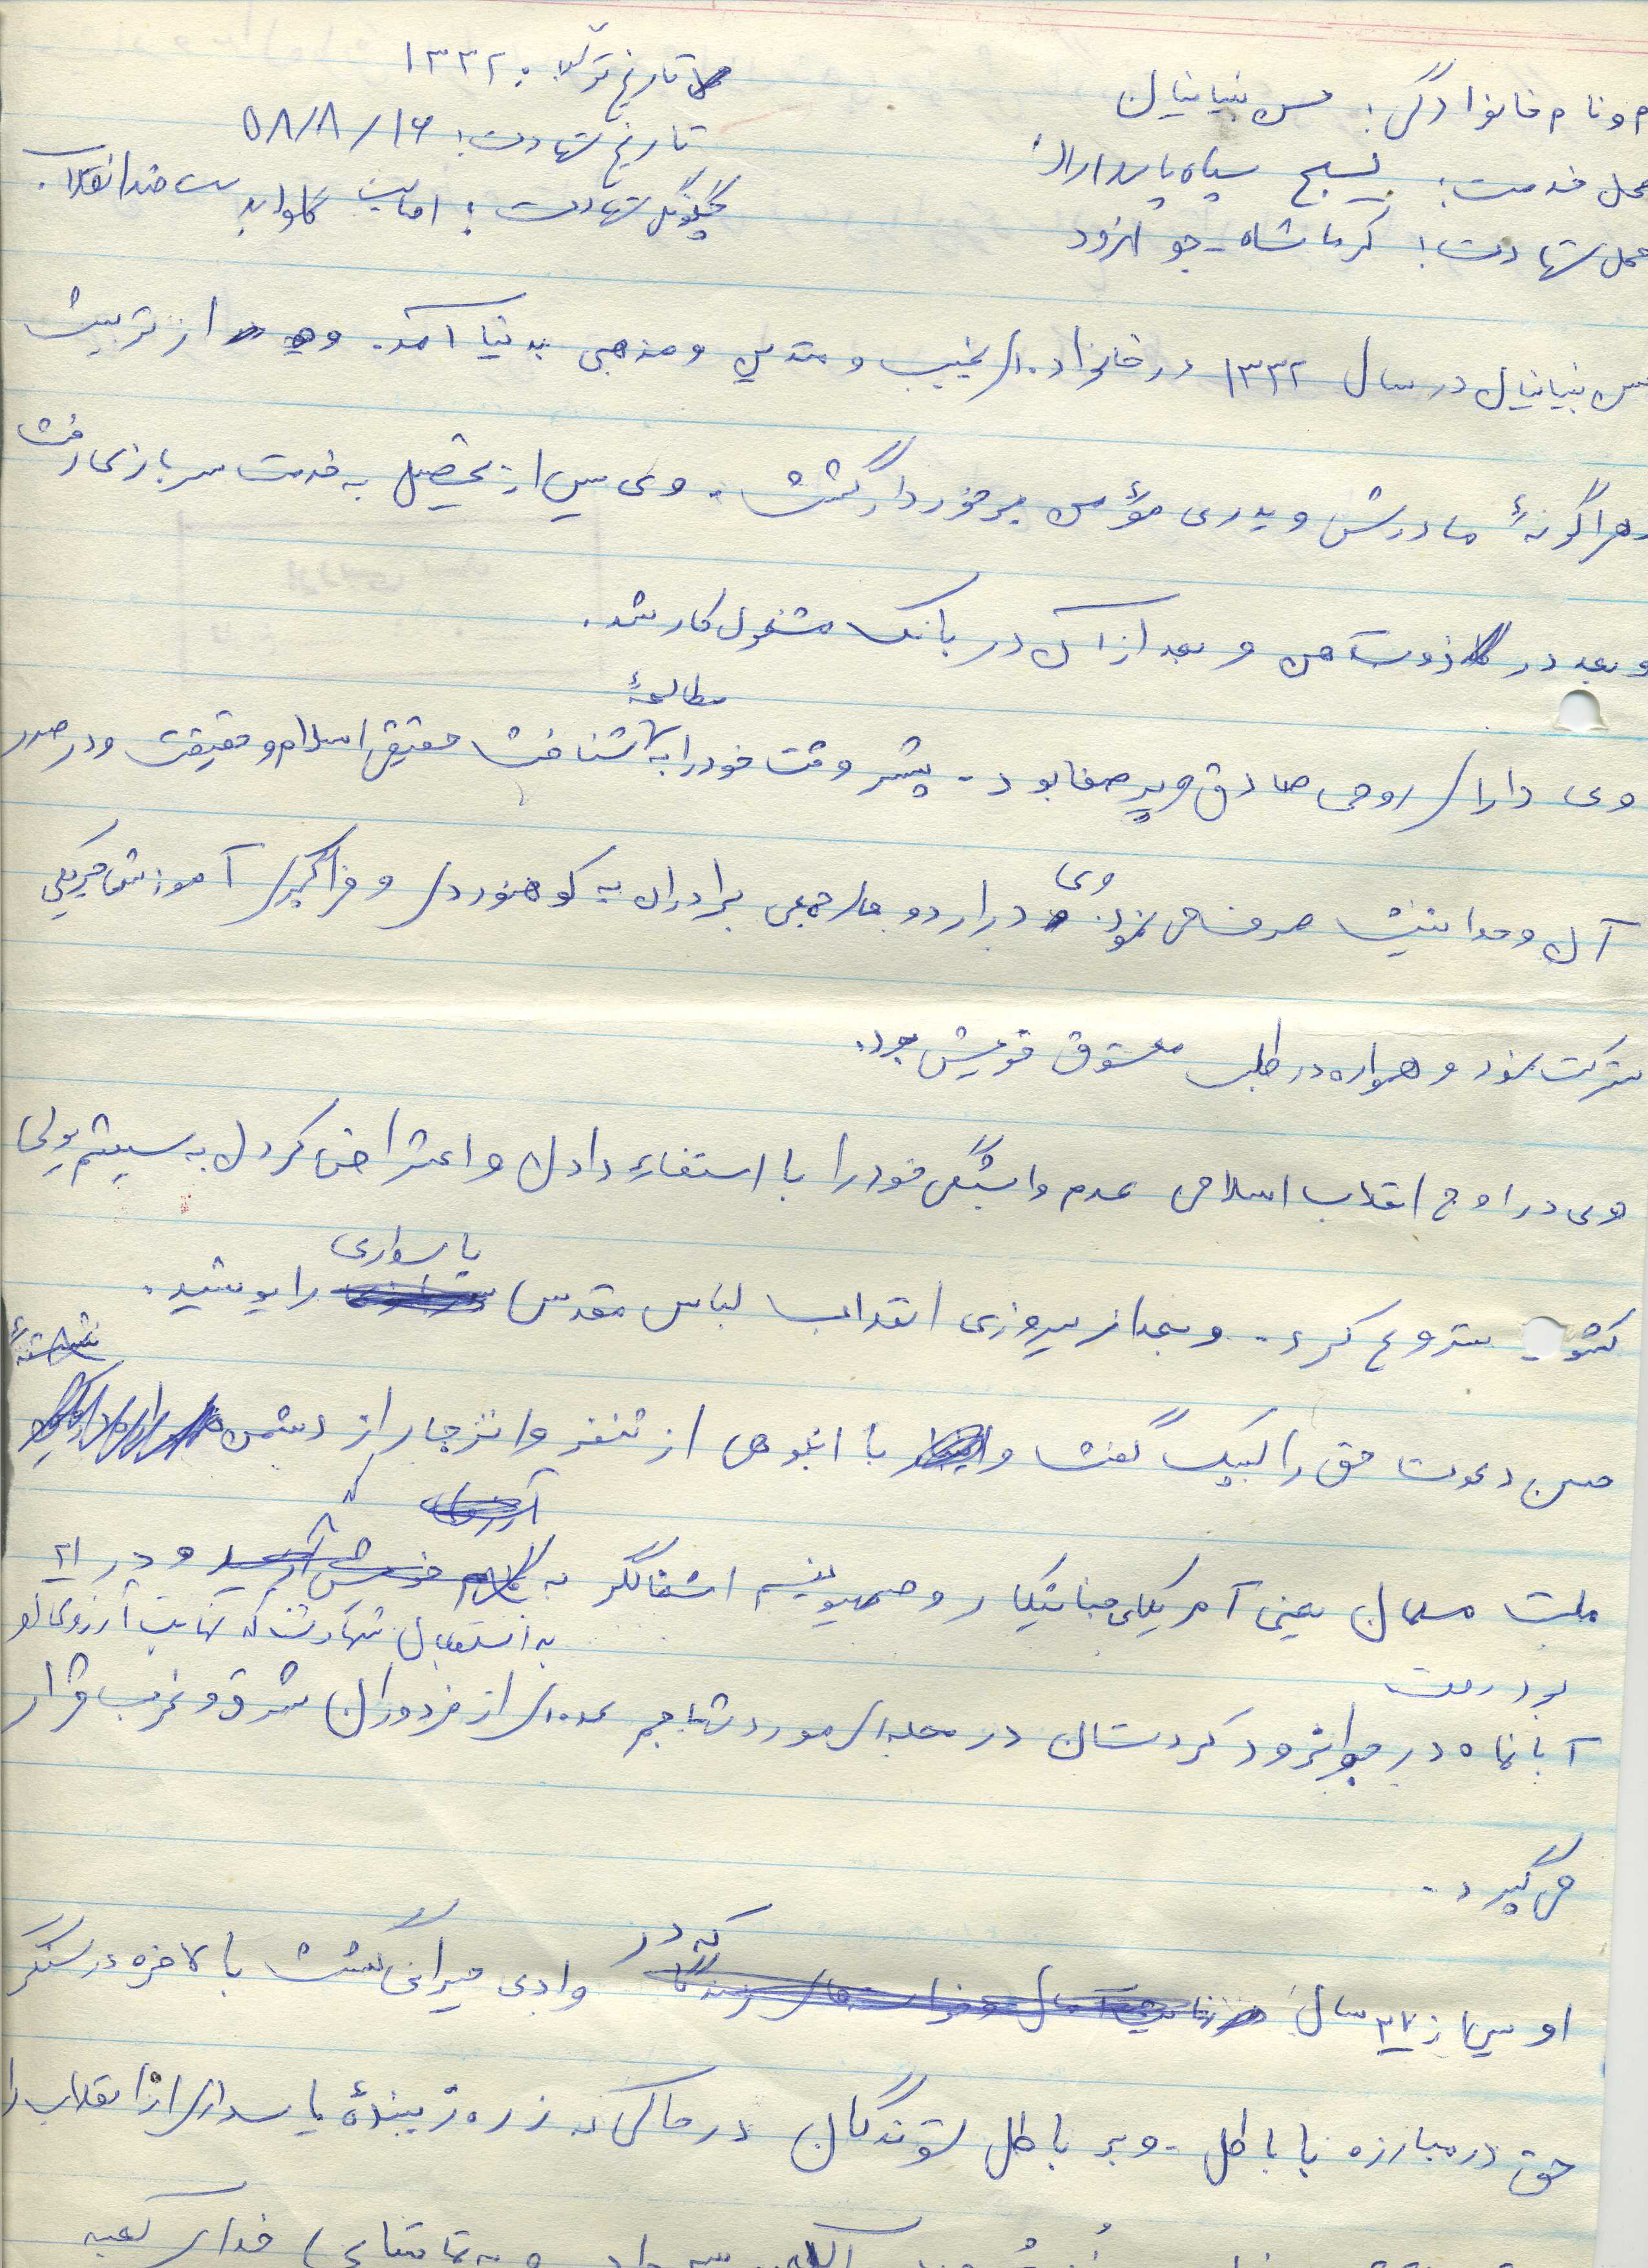 م و نام خانوادگی: حسن بنیانیان
تاریخ تولد: ۱۳۳۲
محل خدمت: بسیج سپاه پاسداران
تاریخ شهادت: ۵۸/۸/۱۶
محل شهادت: کرمانشاه - جوانرود
چگونگی شهادت: اصابت گلوله بدست ضدانقلاب.
حسن بنیانیان در سال ۱۳۳۲ در خانواده‌ای نجیب و متدین و مذهبی بدنیا آمد. وی از تربیت
زهراگونهٔ مادرش و پدری مؤمن برخوردار گشت. وی پس از تحصیل به خدمت سربازی رفت
و بعد در ذوب آهن و بعد از آن در بانک مشغول کار شد.
مطالعهٔ
وی دارای روحی صادق و پر صفا بود - بیشتر وقت خود را به شناخت حقیقی اسلام و حقیقت و در صدد
آن وحدانیت صرف می نمود. وی در اردوهای جمعی برادران به کوهنوردی و فراگیری آموزشها چریکی
شرکت نمود و همواره در طلب معشوق خویش بود.
وی در اوج انقلاب اسلامی عدم وابستگی خود را با استعفاء دادن و اعتراض کردن به سیستم پولی
کشور شروع کرد. و بعد از پیروزی انقلاب لباس مقدس پاسداری را پوشید.
حسن دعوت حق را لبیک گفت و با انبوهی از تنفر و انزجار از دشمن
ملت مسلمان یعنی آمریکای جنایتکار و صهیونیسم اشغالگر به و در ۲۱
به استقبال شهادت که نهایت آرزوی او
بود رفت
آبانماه در جوانرود کردستان در محله‌ای مورد تهاجم عده‌ای از مزدوران شرق و غرب قرار
می گیرد.
او پس از ۲۷ سال که در وادی حیرانی گشت بالاخره در سنگر
حق در مبارزه با باطل - و بر باطل شوندگان در حالی که زره زیبندهٔ پاسداری از انقلاب را
خدای کعبه